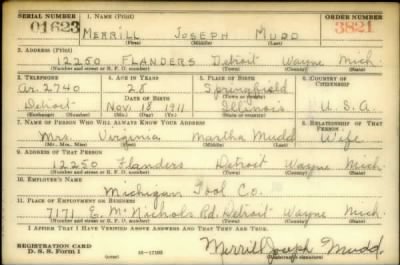 SERIAL NUMBER 1. NAME (Print) ORDER NUMBER
01623 MERRILL JOSEPH MUDD 3821
(First) (Middle) (Last)
2. ADDRESS (Print)
12250 FLANDERS Detroit Wayne Mich.
(Number and street or R. F. D. number) (Town) (County) (State)
3. TELEPHONE 4. AGE IN YEARS 5. PLACE OF BIRTH 6. COUNTRY OF CITIZENSHIP
Ar. 2740 28 Springfield
DATE OF BIRTH (Town or county)
Detroit Nov. 18, 1911 Illinois U.S.A.
(Exchange) (Number) (Mo.) (Day) (Yr.) (State or country)
7. NAME OF PERSON WHO WILL ALWAYS KNOW YOUR ADDRESS 8. RELATIONSHIP OF THAT PERSON
Mrs. Virginia Martha Mudd Wife
(Mr., Mrs., Miss) (First) (Middle) (Last)
9. ADDRESS OF THAT PERSON
12250 Flanders Detroit Wayne Mich
(Number and street or R. F. D. number) (Town) (County) (State)
10. EMPLOYER'S NAME
Michigan Tool Co.
11. PLACE OF EMPLOYMENT OR BUSINESS
7171 E. McNichols Rd. Detroit Wayne Mich.
(Number and street or R. F. D. number) (Town) (County) (State)
I AFFIRM THAT I HAVE VERIFIED ABOVE ANSWERS AND THAT THEY ARE TRUE.
REGISTRATION CARD
D. S. S. Form 1 (over) Merrill Joseph Mudd.
(Registrant's signature)